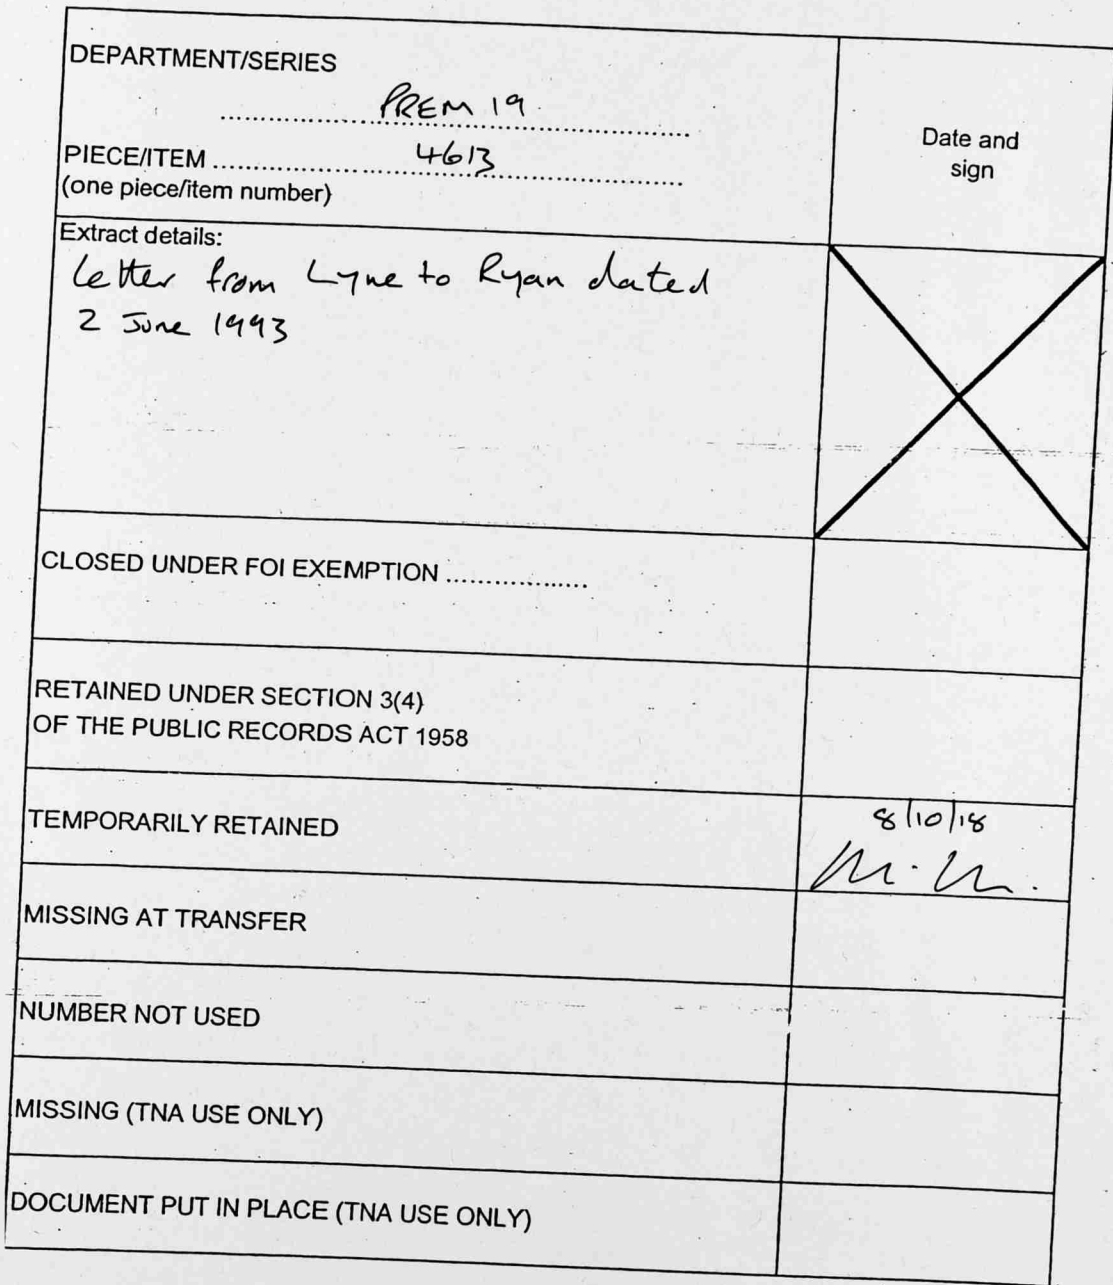 DEPARTMENT/SERIES
PREM 19
Date and
sign
PIECE/ITEM 4613
(one piece/item number)
Extract details:
Letter from Lyne to Ryan dated
2 June 1993
CLOSED UNDER FOI EXEMPTION ..................
RETAINED UNDER SECTION 3(4)
OF THE PUBLIC RECORDS ACT 1958
TEMPORARILY RETAINED
8/10/18
MISSING AT TRANSFER
NUMBER NOT USED
MISSING (TNA USE ONLY)
DOCUMENT PUT IN PLACE (TNA USE ONLY)